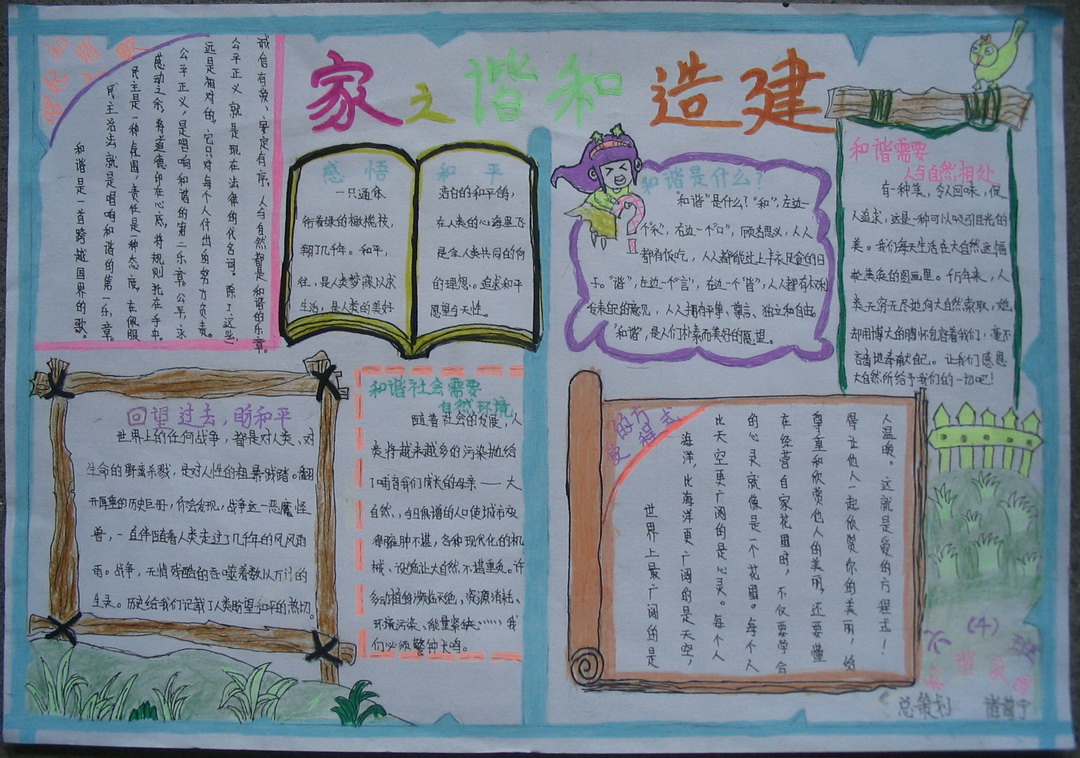 建造和谐之家
和谐是一首跨越国界的歌。
民主法治 就是唱响和谐的第一乐章。
民主是一种氛围，责任是一种态度。在佩服
感动之余，将道德印在心底，将规则抓在手中。
公平正义，是唱响和谐的第二乐章。公平，永
远是相对的，它只对每个人付出的努力负责。
公平正义 就是现在法律的代名词。除了这些
诚信有爱、安定有序、人与自然都是和谐的乐章。
感悟 和平
一只通体
衔着绿的橄榄枝，
翔了几千年。和平，
往，是人类梦寐以求
生活，是人类的美好
洁白的和平鸽，
在人类的心海里飞
是全人类共同的向
的理想。追求和平
愿望与天性。
和谐是什么？
“和谐”是什么？“和”，左边一
个“禾”，右边一个“口”，顾名思义，人人
都有饭吃，人人都能过上丰衣足食的日
子。“谐”，左边一个“言”，右边一个“皆”，人人都有权利
发表自己的意见，人人拥有平等、尊言、独立和自由。
“和谐”，是人们朴素而美好的愿望。
和谐需要
人与自然相处
有一种美，令人回味，促
人追求，这是一种可以吸引目光的
美。我们每天生活在大自然这幅
千百年来，人
类无穷无尽地向大自然索取，她
却用博大的胸怀包容着我们，毫不
吝啬地奉献自己。让我们感恩
大自然所给予我们的一切吧！
回望过去，盼和平
世界上的任何战争，都是对人类、对
生命的野蛮杀戮，是对人性的粗暴践踏。翻
开厚重的历史巨册，你会发现，战争这一恶魔怪
兽，一直伴随着人类走过了几千年的风风雨
雨。战争，无情残酷的吞噬着数以万计的
生灵。历史给我们记载了人类盼望和平的热切。
和谐社会需要
自然环境
随着社会的发展，人
类将越来越多的污染抛给
了哺育我们成长的母亲——大
自然、，与日俱增的人口使城市变
得臃肿不堪，各种现代化的机
械、设施让大自然不堪重负。许
多动植物濒临灭绝，资源消耗、
环境污染、能量紧缺……我
们必须警钟长鸣。
爱的方程式
世界上最广阔的是
海洋，比海洋更广阔的是天空，
比天空更广阔的是心灵。每个人
的心灵就像是一个花园。每个人
在经营自家花园时，不仅要学会
尊重和欣赏他人的美丽，还要懂
得让他人一起欣赏你的美丽，给
人温暖。这就是爱的方程式！
六（4）班
和谐家园
总策划